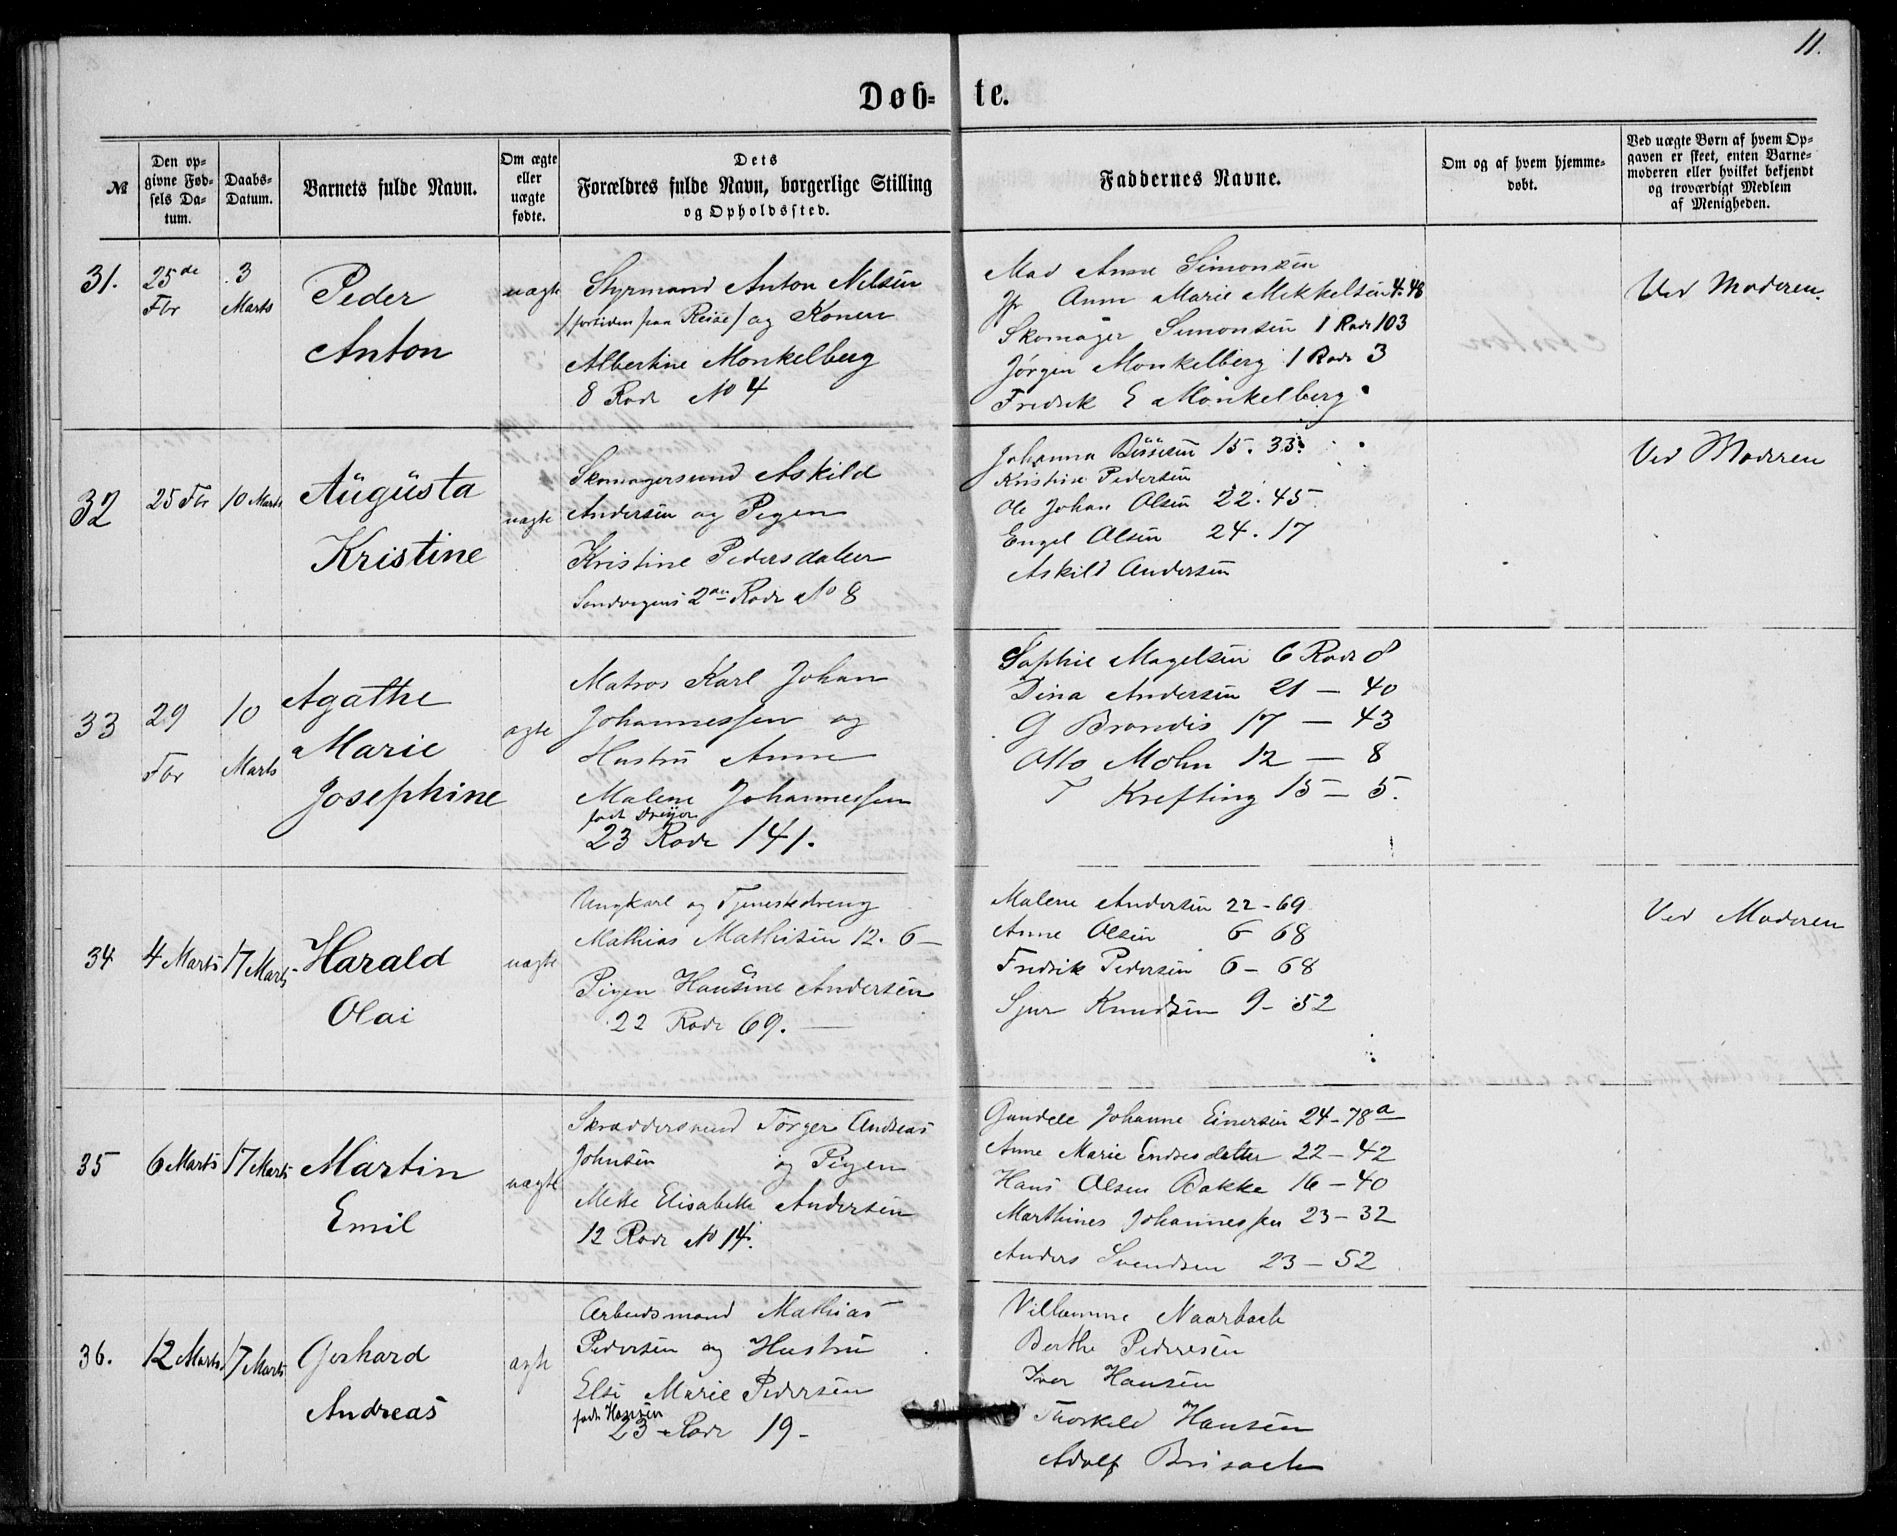 11.
Døb- te.
№
Den op-
givne Fød-
sels Da-
tum.
Daabs-
Datum.
Barnets fulde Navn.
Om ægte
eller
uægte
fødte.
Dets
Forældres fulde Navn, borgerlige Stilling
og Opholdssted.
Faddernes Navne.
Om og af hvem hjemme-
døbt.
Ved uægte Børn af hvem Op-
gaven er skeet, enten Barne-
moderen eller hvilket bekjendt
og troværdigt Medlem
af Menigheden.
31.
25de
Fbr
3
Marts
Peder
Anton
uægte
Styrmand Anton Nilsen
/fortiden paa Reise/ og Konen
Albertine Monkelberg
8 Rode No 4
Mad Anne Simonsen
Jfr Anne Marie Mikkelsen 4.48
Skomager Simonsen 1 Rode 103
Jørgen Monkelberg 1 Rode 3
Fredrik E Monkelberg
Ved Moderen.
32
25 Fbr
10 Marts
Augusta
Kristine
uægte
Skomagersvend Askild
Andersen og Pigen
Kristine Pedersdatter
Sandvigens 2den Rode No 8
Johanna 15. 33.
Kristine Pedersen
Ole Johan Olsen 22. 45
Engel Olsen 24. 17
Askild Andersen
Ved Moderen
33
29
Fbr
10
Marts
Agathe
Marie
Josephine
ægte
Matros Karl Johan
Johannessen og
Hustru Anne
Malene Johannessen
født Dreyer
23 Rode 141.
Sophie Magelsen 6 Rode 8
Dina Andersen 21 - 40
G Brandis 17 - 43
Otto Mohn 12 - 8
T Krefting 15 - 5.
34
4 Marts
17 Marts
Harald
Olai
uægte
Ungkarl og Tjenestedreng
Mathias Mathisen 12. 6 -
Pigen Hansine Andersen
22 Rode 69.
Malene Andersen 22 - 69
Anne Olsen 6 68
Fredrik Pedersen 6 - 68
Sjur Knudsen 9 - 52
Ved Moderen
35
6 Marts
17 Marts
Martin
Emil
uægte
Skræddersvend Torger Andreas
Johnsen og Pigen
Mette Elisabeth Andersen
12 Rode No 14.
Gundele Johanne Einersen 24 - 78a
Anne Marie Endresdatter 22 - 42
Hans Olsen Bakke 16 - 40
Marthines Johannessen 23 - 32
Anders Svendsen 23 - 52
36.
12 Marts
17 Marts
Gerhard
Andreas
ægte
Arbeidsmand Mathias
Pedersen og Hustru
Else Marie Pedersen
født Hansen
23 Rode 19 -
Villamine Naarbach
Berthe Pedersen
Iver Hansen
Thorkild Hansen
Adolf Brisach